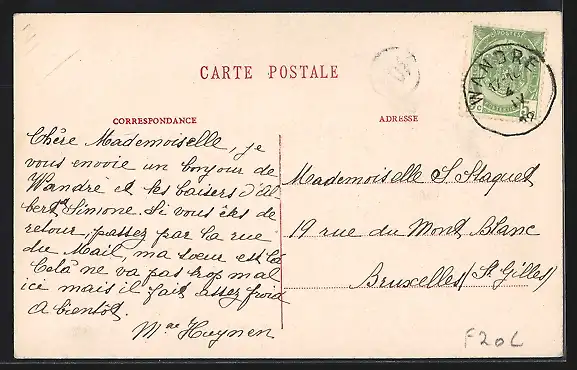 CARTE POSTALE
WANDRE
CORRESPONDANCE
Chère Mademoiselle, je
vous envoie un bonjour de
Wandre et les baisers d'Al-
bert et Simone. Si vous êtes de
retour, passez par la rue
du Mail, ma soeur est là
Celà ne va pas trop mal
ici mais il fait assez froid
A bientot.
Mme Huynen
ADRESSE
Mademoiselle S. Staquet
19 rue du Mont Blanc
Bruxelles (St Gilles)
F20L